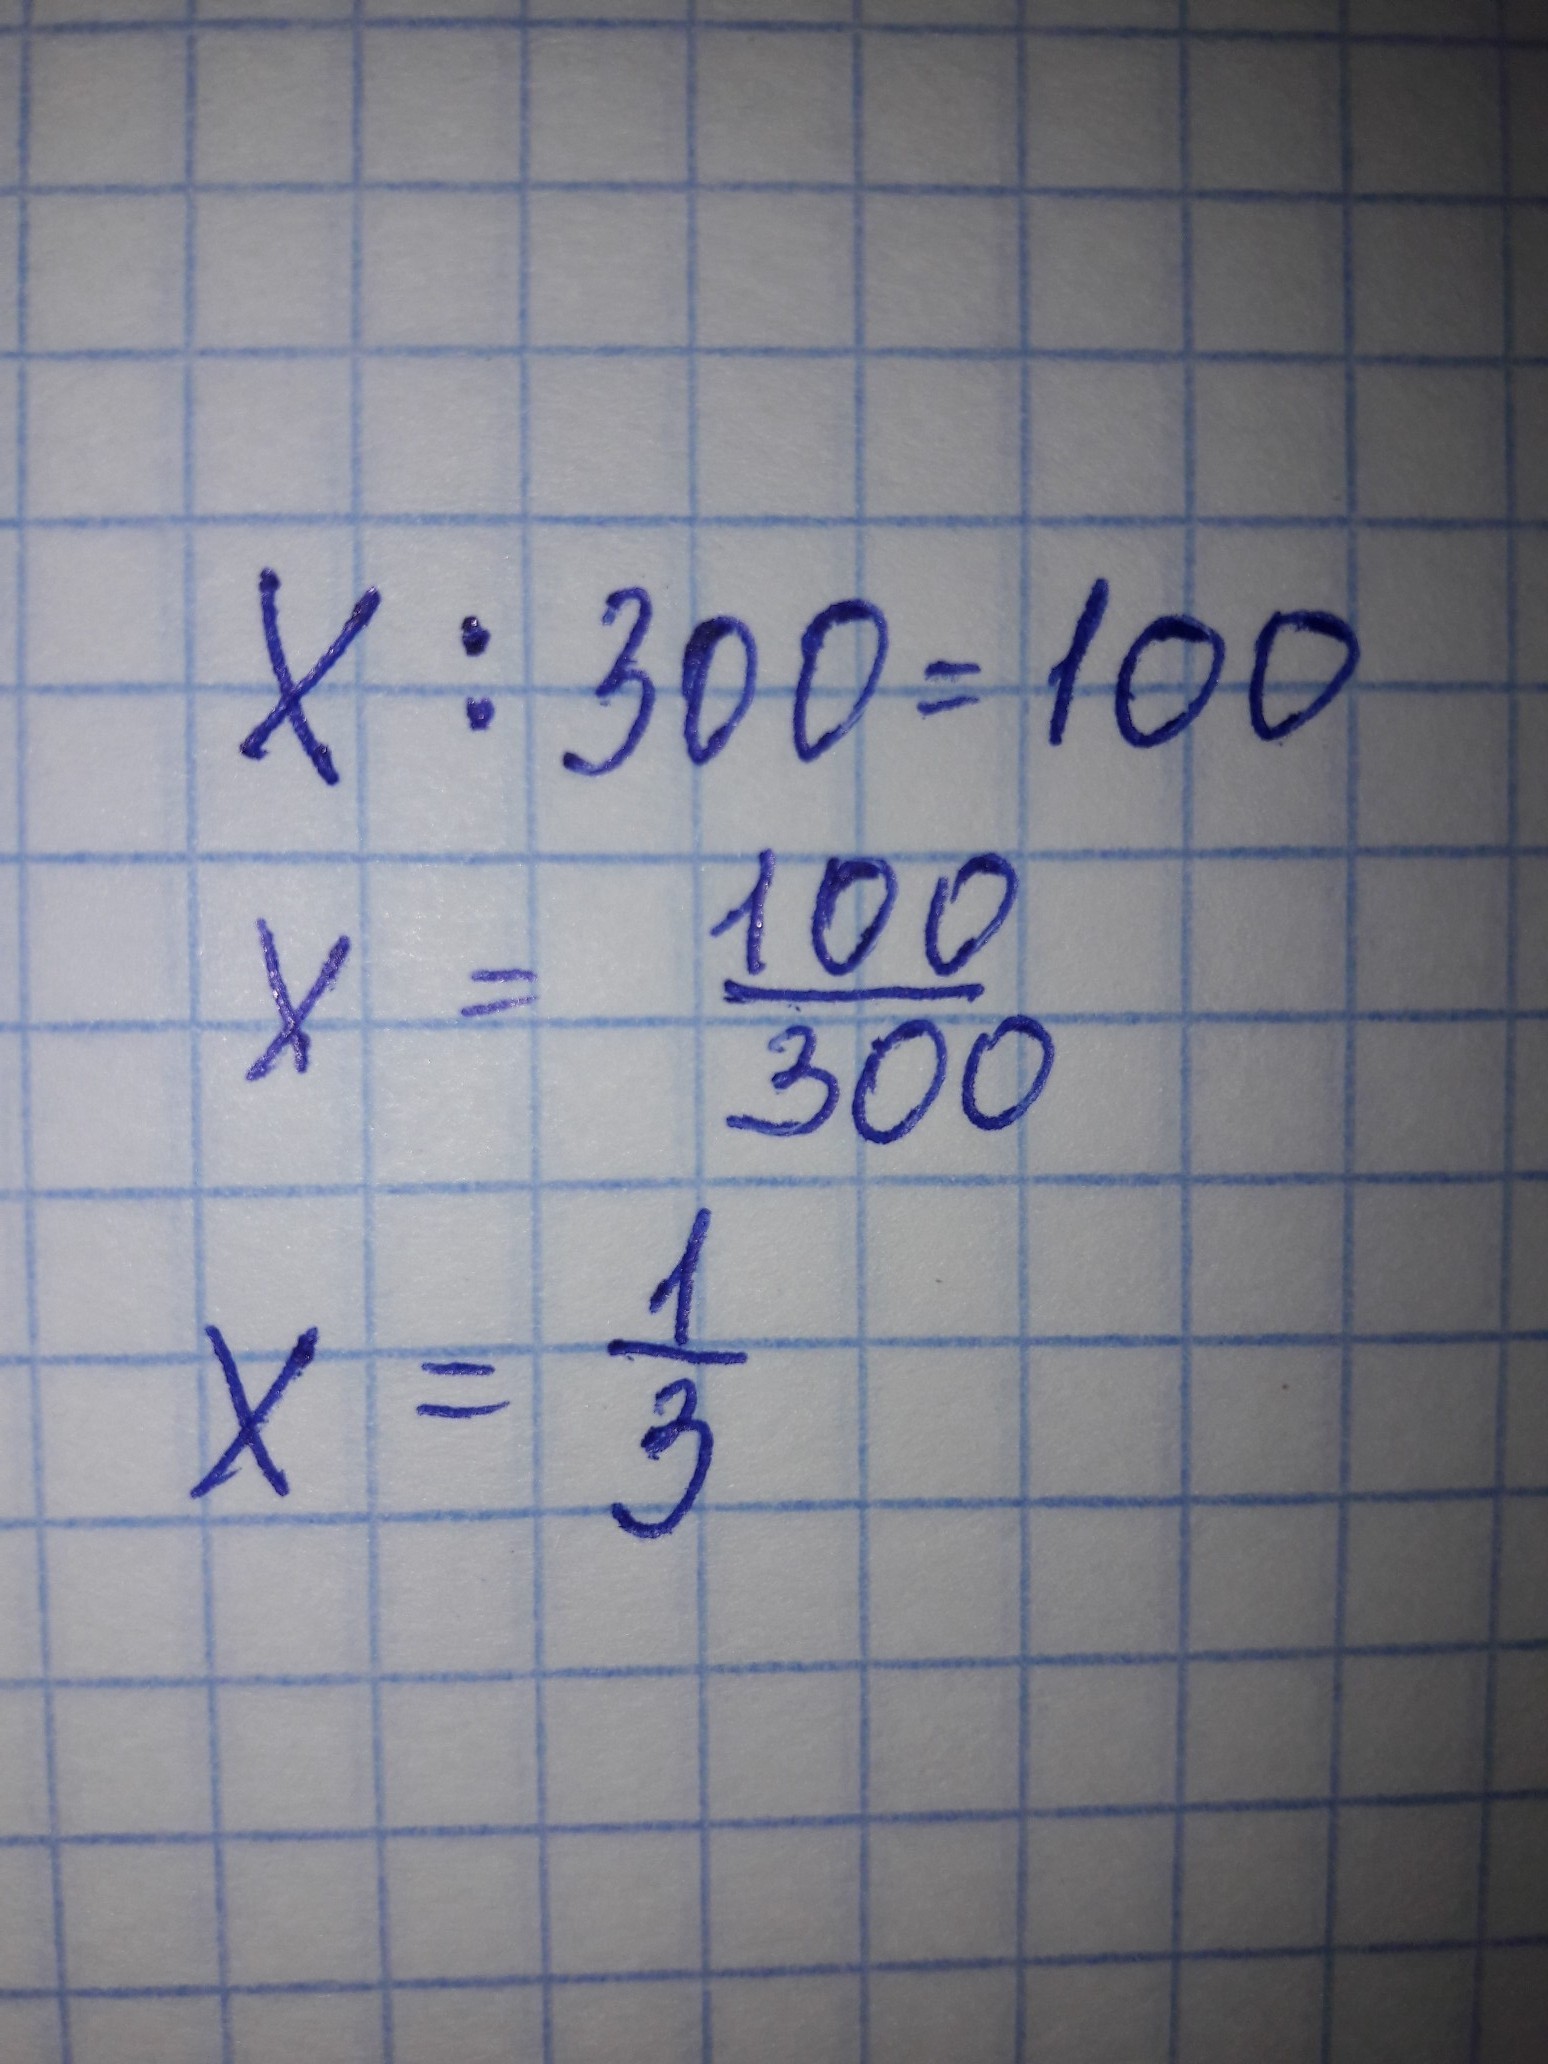 X : 300 = 100
X = 100/300
X = 1/3